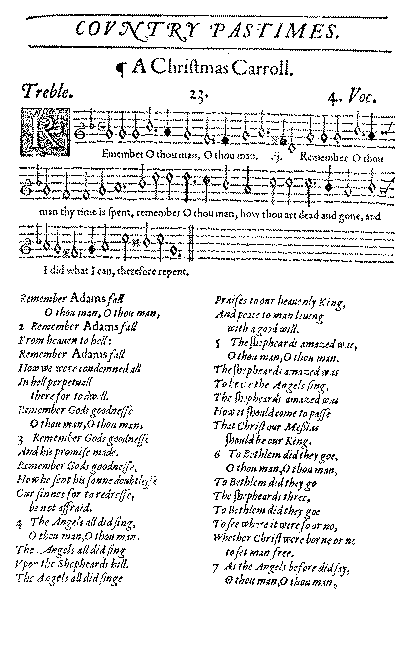 COVNTRY PASTIMES.
¶ A Chriſtmas Carroll.
Treble. 23. 4. Voc.
REmember O thou man, O thou man, .ij. Remember O thou
man thy time is ſpent, remember O thou man, how thou art dead and gone, and
I did what I can, therefore repent.
Remember Adams fall
O thou man, O thou man,
2 Remember Adams fall
From heauen to hell:
Remember Adams fall
How we were condemned all
In hell perpetuall
there for to dwell.
Remember Gods goodneſſe
O thou man, O thou man,
3 Remember Gods goodneſſe
And his promiſe made.
Remember Gods goodneſſe,
How he ſent his ſonne doubtleſſe
Our ſinnes for to redreſſe,
be not affraid.
4 The Angels all did ſing,
O thou man, O thou man.
The Angels all did ſing
Vpon the Shepheards hill.
The Angels all did ſinge
Praiſes to our heauenly King,
And peace to man liuing
with a good will.
5 The ſhepheards amazed was,
O thou man, O thou man.
The ſhepheards amazed was
To heare the Angels ſing,
The ſhepheards amazed was
How it ſhould come to paſſe
That Chriſt our Meſsias
ſhould be our King.
6 To Bethlem did they goe,
O thou man, O thou man,
To Bethlem did they go
The ſhepheards three,
To Bethlem did they goe
To ſee where it were ſo or no,
Whether Chriſt were borne or no
to ſet man free.
7 As the Angels before did ſay,
O thou man, O thou man,